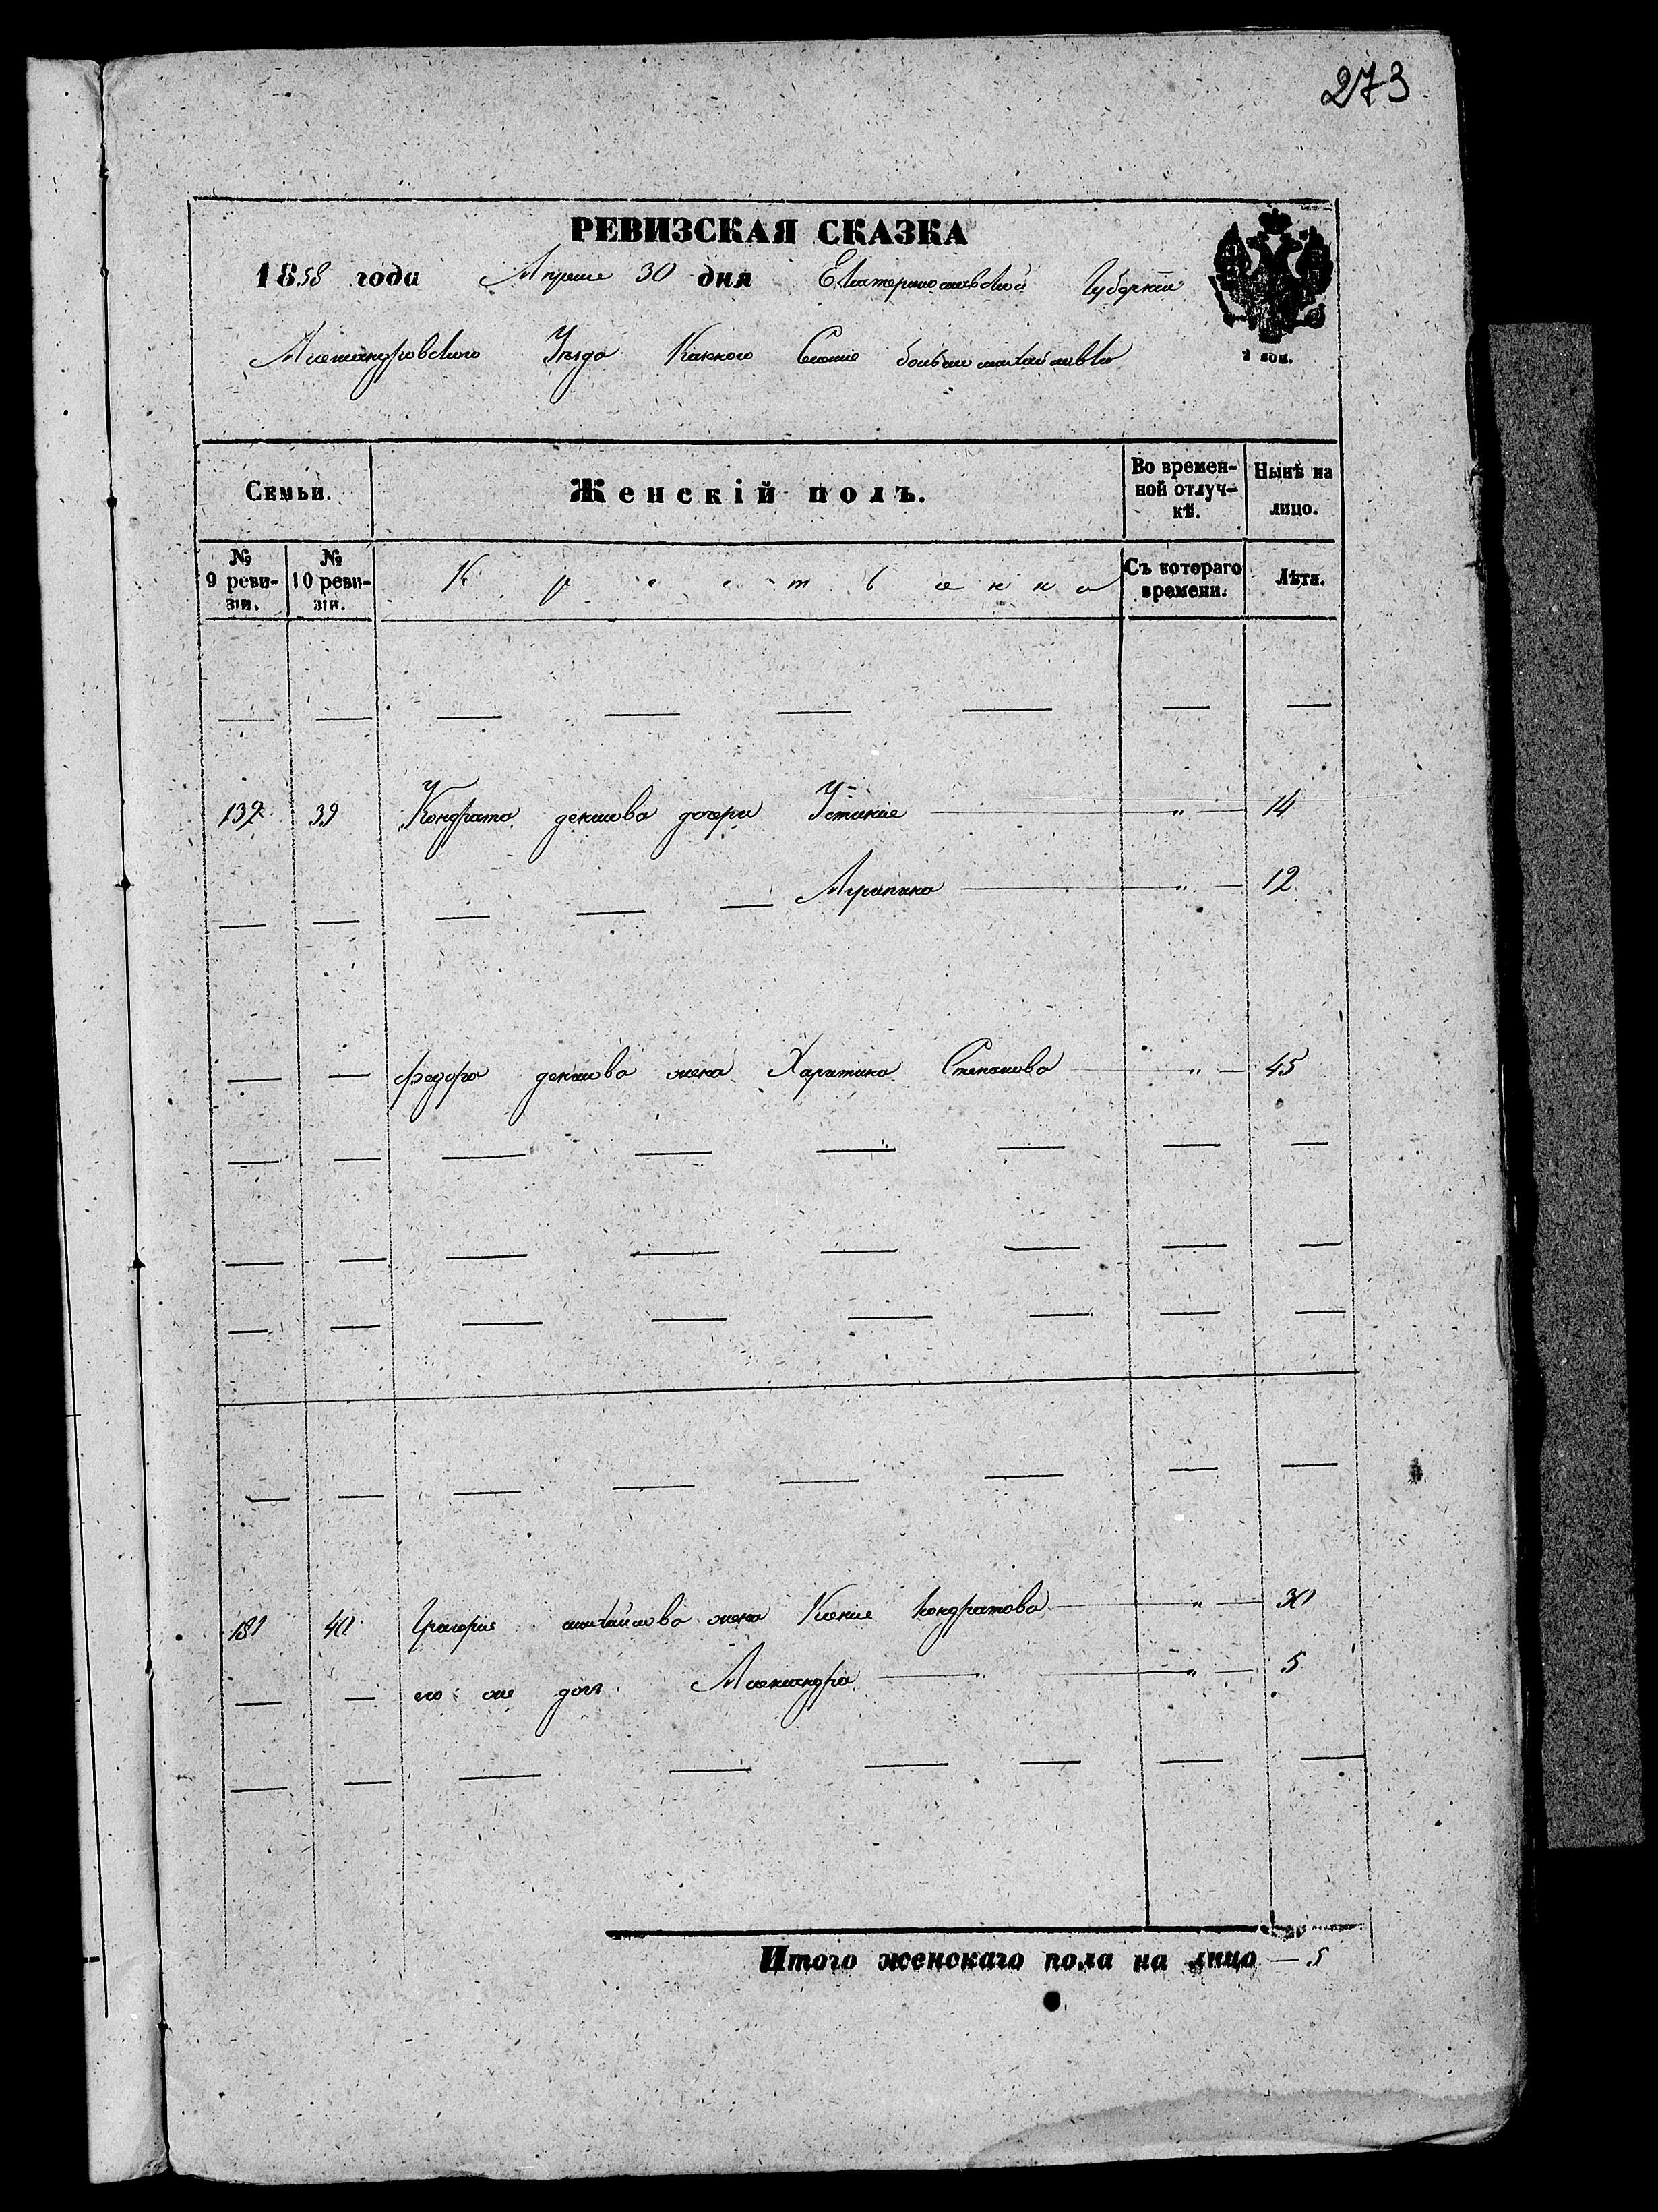 273
РЕВИЗСКАЯ СКАЗКА
1858 года Апреля 30 дня Екатеринославской Губернии
Александровского Уезда Казенного Селения больше михайловки
1 коп.
Семьи. Женскій полъ. Во временной отлучкѣ. Нынѣ на лицо.
№ 9 ревизіи. № 10 ревизіи. Крестьянка Съ котораго времени. Лѣта.
137 39 У Кондрата дочери Устиния " 14
Агрипина " 12
Федора жена Харитина Степанова " 45
181 40 Григория михайлова жена Ксения Кондратова " 30
его же дочь Александра " 5
Итого женскаго пола на лицо — 5